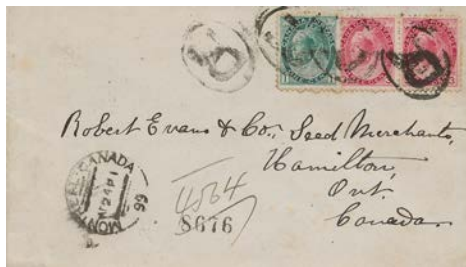 R
R
Robert Evans & Co., Seed Merchants,
Hamilton,
Ont.
Canada.
MONTREAL CANADA
24
99
4564
8676